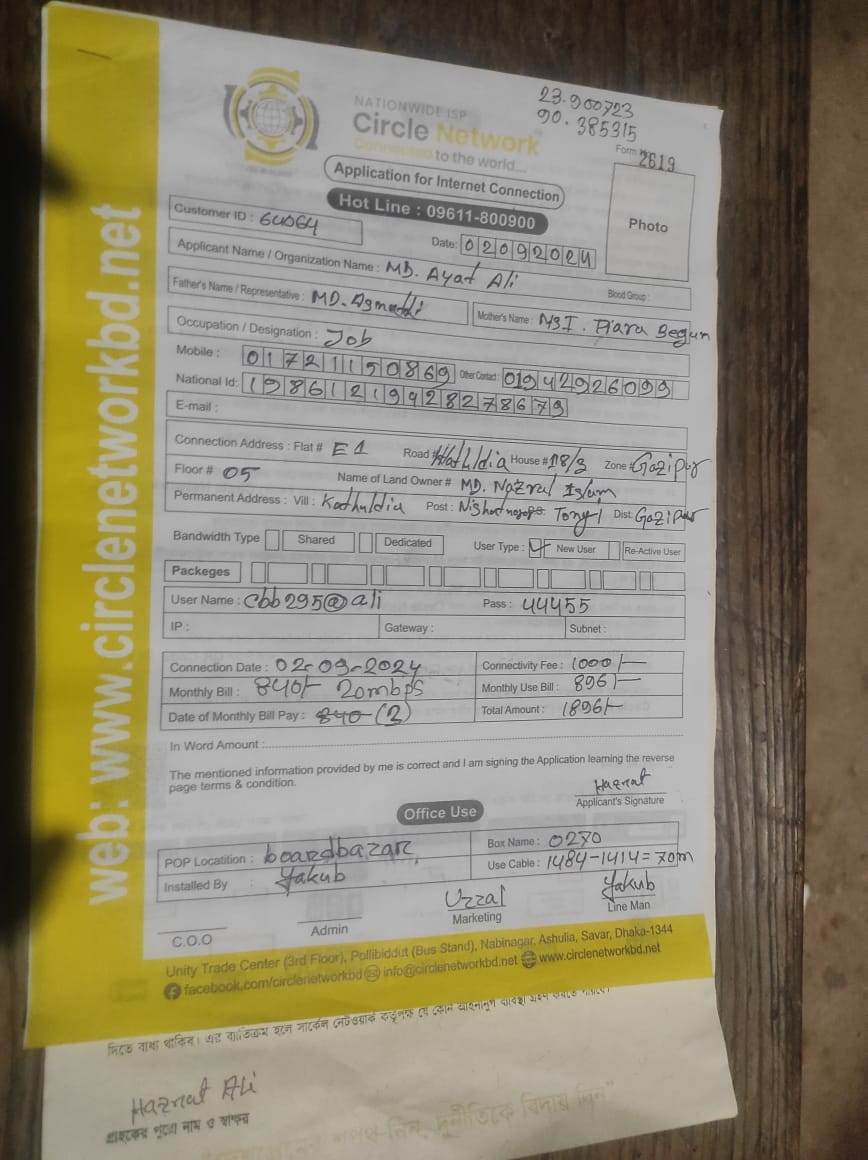 23.900723
90.385315
NATIONWIDE ISP
Circle Network
Connected to the world...
Form No 2619
Application for Internet Connection
Hot Line : 09611-800900
Photo
Customer ID : 64064
Date: 02092024
Applicant Name / Organization Name : MD. Ayat Ali
Blood Group :
Father's Name / Representative : MD.
Mother's Name : Piara Begum
Occupation / Designation : Job
Mobile : 01721150869 Other Contact : 01942926099
National Id: 19861219928278679
E-mail :
Connection Address : Flat # E1 Road # House # 18/3 Zone : Gazipur
Floor # 05 Name of Land Owner # MD. Nazrul Islam
Permanent Address : Vill : Kathuldia Post : Tongi Dist: Gazipur
Bandwidth Type Shared Dedicated User Type : New User Re-Active User
Packeges
User Name : cbb295@ali Pass : 44455
IP : Gateway : Subnet :
Connection Date : 02-09-2024 Connectivity Fee : 1000/-
Monthly Bill : 840/- 20mbps Monthly Use Bill : 896/-
Date of Monthly Bill Pay : 840 (2) Total Amount : 1896/-
In Word Amount :
The mentioned information provided by me is correct and I am signing the Application learning the reverse
page terms & condition.
Haznat
Applicant's Signature
Office Use
POP Locatition : boardbazar Box Name : 0270
Installed By : Yakub Use Cable : 1484-1414=70m
Uzzal Yakub
C.O.O Admin Marketing Line Man
Unity Trade Center (3rd Floor), Pollibiddut (Bus Stand), Nabinagar, Ashulia, Savar, Dhaka-1344
facebook.com/circlenetworkbd info@circlenetworkbd.net www.circlenetworkbd.net
web: www.circlenetworkbd.net
দিতে বাধ্য থাকিব। এর ব্যতিক্রম হলে সার্কেল নেটওয়ার্ক কর্তৃপক্ষ যে কোন আইনানুগ ব্যবস্থা গ্রহণ করতে পারবে।
Haznat Ali
গ্রাহকের পুরো নাম ও স্বাক্ষর
নিন, দুর্নীতিকে বিদায় দিন"